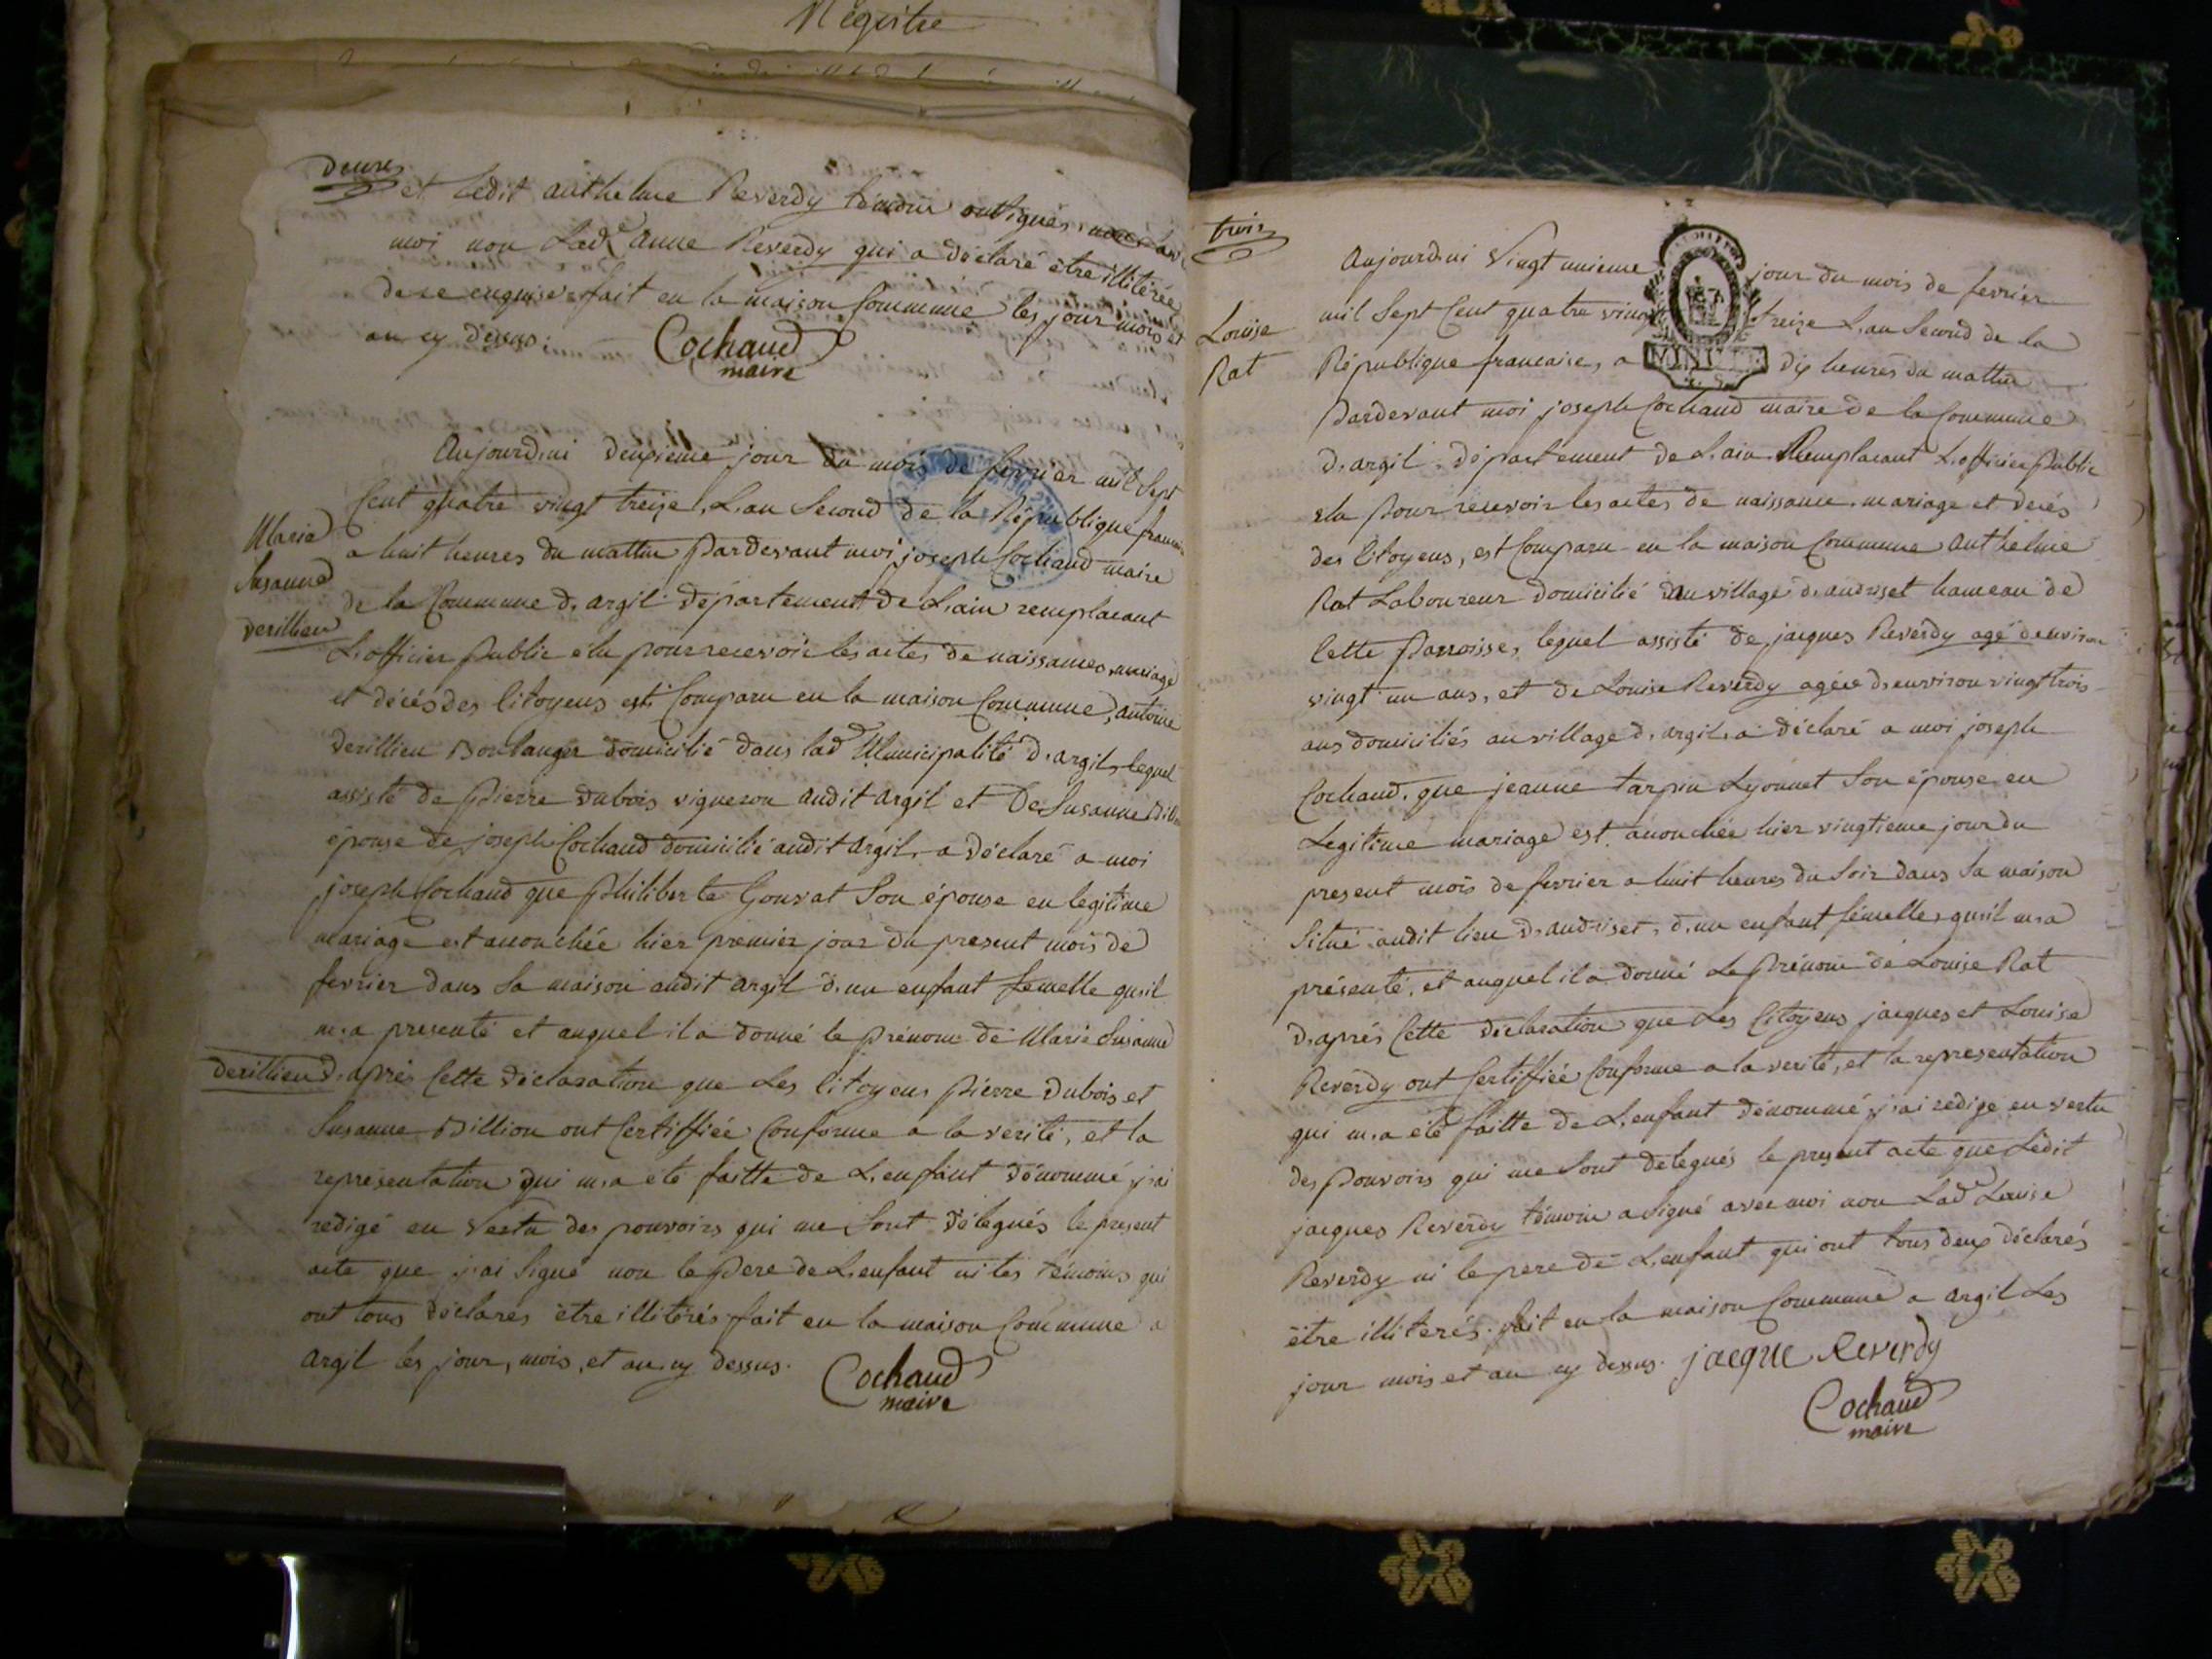 Régistre
Deuxe
et ledit anthelme Reverdy témoin ont signés avec
moi non lade anne Reverdy qui a déclaré être illitérée
de ce enquise fait en la maison Commune les jour mois et
an cy dessus.
Cochaud
maire
Aujourd.ui deuxieme jour du mois de fevrier mil sept
Cent quatre vingt treize, L.an Second de la République francaise
Marie
Susanne
derillieu
a huit heures du mattin pardevant moi joseph Cochaud maire
de la Commune d. argil département de L.ain remplacant
L.officier public élu pour recevoir les actes de naissances, mariage
et décés des Citoyens est Comparu en la maison Commune, antoine
derillieu Boulanger domicilié dans lad Municipalité d. argil, lequel
assisté de pierre dubois vigneron audit argil et De Susanne
épouse de joseph Cochaud domicilié audit argil, a déclaré a moi
joseph Cochaud que philiberte Gonvat Son épouse en legitime
mariage est accouchée hier premier jour du present mois de
fevrier dans sa maison audit argil d.un enfant femelle qu.il
m.a presenté et auquel il a donné le prénom de Marie Susanne
derillieu d.aprés Cette déclaration que les Citoyens pierre dubois et
Susanne Billion ont Certiffiée Conforme a la verité, et la
représentation qui m.a été faitte de L.enfant dénommé j.ai
rédigé en Vertu des pouvoirs qui me Sont délegués le present
acte que j.ai Signé non le pere de L.enfant ni les témoins qui
ont tous déclarés être illitérés fait en la maison Commune a
argil les jour, mois, et an cy dessus.
Cochaud
maire
trois
Louise
Rat
Aujourd.ui Vingt unieme jour du mois de fevrier
mil Sept Cent quatre vingt treize L.an Second de la
République francaise, a dix heures du mattin
MINUTE
Pardevant moi joseph Cochaud maire de la Commune
d.argil département de L.ain Remplacant L.officier public
élu pour recevoir les actes de naissance, mariage et decés
des Citoyens, est Comparu en la maison Commune anthelme
Rat Laboureur domicilié au village d.andriset hameau de
Cette Parroisse, lequel assisté de jacques Reverdy agé denviron
vingt un ans, et de Louise Reverdy agée d.environ vingt trois
ans domiciliés au village d.argil, a déclaré a moi joseph
Cochaud, que jeanne tarpin Lyonnet Son épouse en
Legitime mariage est accouchée hier vingtieme jour du
present mois de fevrier a huit heures du Soir dans Sa maison
Situé audit lieu d.andriset, d.un enfant fémelle, qu.il m.a
présenté, et auquel il a donné Le prénom de Louise Rat
d.aprés Cette déclaration que Les Citoyens jacques et Louise
Reverdy ont Certiffiée Conforme a la verité, et la representation
qui m.a été faitte de L.enfant dénommé, j.ai rédigé en vertu
des pouvoirs qui me Sont délegués le present acte que Ledit
jacques Reverdy témoin a Signé avec moi non Lade Louise
Reverdy ni le pere de L.enfant qui ont tous deux déclarés
être illiterés. fait en la maison Commune a argil Les
jour mois et an cy dessus. jacque Reverdy
Cochaud
maire